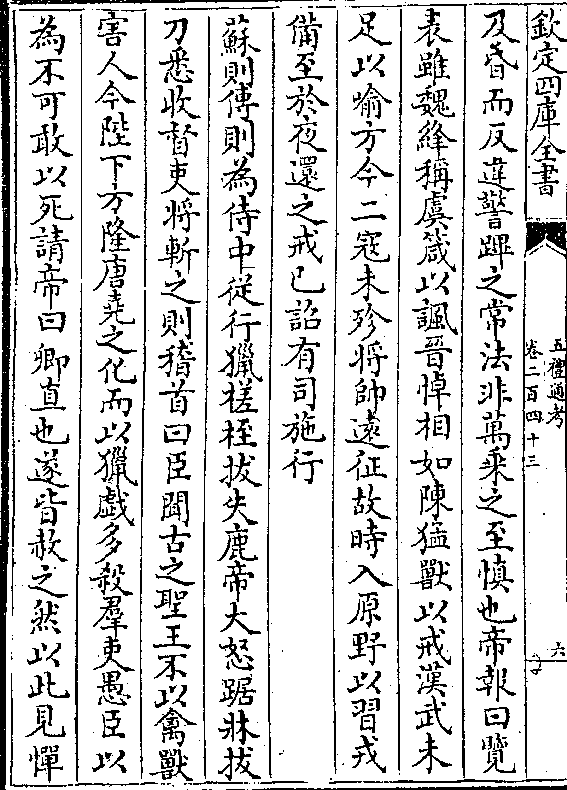 欽定四庫全書
五禮通考
卷二百四十三
六
及昏而反違警蹕之常法非萬乘之至慎也帝報曰覽
表雖魏絳稱虞箴以諷晉悼相如陳猛獸以戒漢武未
足以喻方今二寇未殄將帥遠征故時入原野以習戎
備至於夜還之戒已詔有司施行
蘇則傳則為侍中從行獵槎桎拔失鹿帝大怒踞牀拔
刀悉收督吏將斬之則稽首曰臣聞古之聖王不以禽獸
害人今陛下方隆唐堯之化而以獵戲多殺羣吏愚臣以
為不可敢以死請帝曰卿直也遂皆赦之然以此見憚